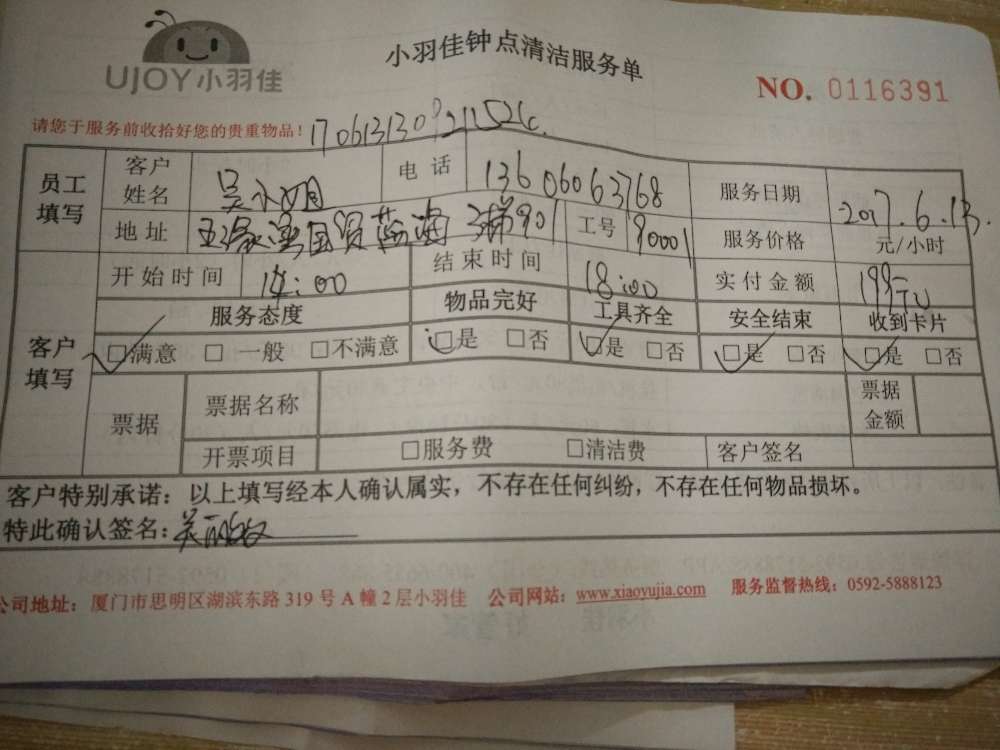 UJOY小羽佳
小羽佳钟点清洁服务单
NO. 0116391
请您于服务前收拾好您的贵重物品!
员工填写 客户姓名 电话 13606063768 服务日期 2017.6.13.
地址 3梯901 工号 90001 服务价格 元/小时
开始时间 14:00 结束时间 18:00 实付金额 199元
客户填写 服务态度 物品完好 工具齐全 安全结束 收到卡片
□满意 □一般 □不满意 □是 □否 □是 □否 □是 □否 □是 □否
票据 票据名称 票据金额
开票项目 □服务费 □清洁费 客户签名
客户特别承诺:以上填写经本人确认属实,不存在任何纠纷,不存在任何物品损坏。
特此确认签名:
公司地址:厦门市思明区湖滨东路319号A幢2层小羽佳 公司网站:www.xiaoyujia.com 服务监督热线:0592-5888123